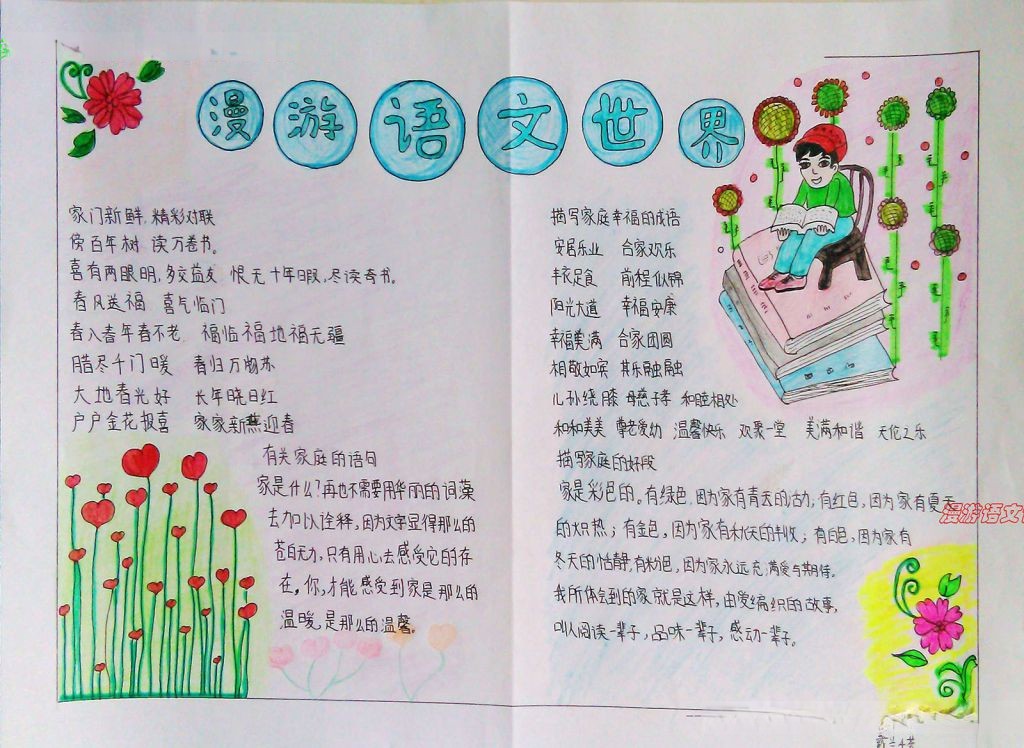 漫游语文世界
家门新鲜,精彩对联
傍百年树 读万卷书。
喜有两眼明,多交益友 恨无十年暇,尽读奇书。
春风送福 喜气临门
春入春年春不老 福临福地福无疆
腊尽千门暖 春归万物苏
大地春光好 长年晓日红
户户金花报喜 家家新燕迎春
有关家庭的语句
家是什么?再也不需要用华丽的词藻
去加以诠释,因为文字显得那么的
苍白无力,只有用心去感受它的存
在,你,才能感受到家是那么的
温暖,是那么的温馨。
描写家庭幸福的成语
安居乐业 合家欢乐
丰衣足食 前程似锦
阳光大道 幸福安康
幸福美满 合家团圆
相敬如宾 其乐融融
儿孙绕膝 母慈子孝 和睦相处
和和美美 尊老爱幼 温馨快乐 欢聚一堂 美满和谐 天伦之乐
描写家庭的好段
家是彩色的。有绿色,因为家有春天的活力;有红色,因为家有夏天
的炽热;有金色,因为家有秋天的丰收;有白色,因为家有
冬天的恬静,有粉色,因为家永远充满爱与期待。
我所体会到的家就是这样,由爱编织的故事,
叫人阅读一辈子,品味一辈子,感动一辈子。
漫游语文